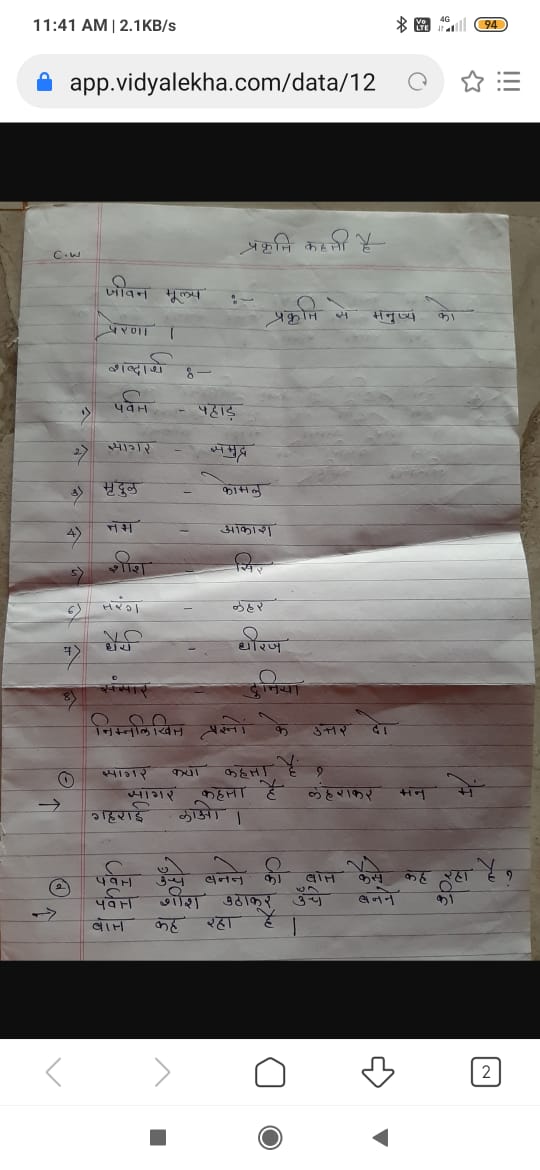 11:41 AM | 2.1KB/s
Vo LTE 4G 94
app.vidyalekha.com/data/12
C.W
प्रकृति कहती है
जीवन मूल्य :- प्रकृति से मनुष्य को
प्रेरणा ।
शब्दार्थ :-
1) पर्वत - पहाड़
2) सागर - समुद्र
3) मृदुल - कोमल
4) नभ - आकाश
5) शीश - सिर
6) तरंग - लहर
7) धैर्य - धीरज
8) संसार - दुनिया
निम्नलिखित प्रश्नों के उत्तर दो
① सागर क्या कहता है ?
→ सागर कहता है लहराकर मन में
गहराई लाओ ।
② पर्वत ऊँचे बनने की बात कैसे कह रहा है ?
→ पर्वत शीश उठाकर ऊँचे बनने की
बात कह रहा है |
2